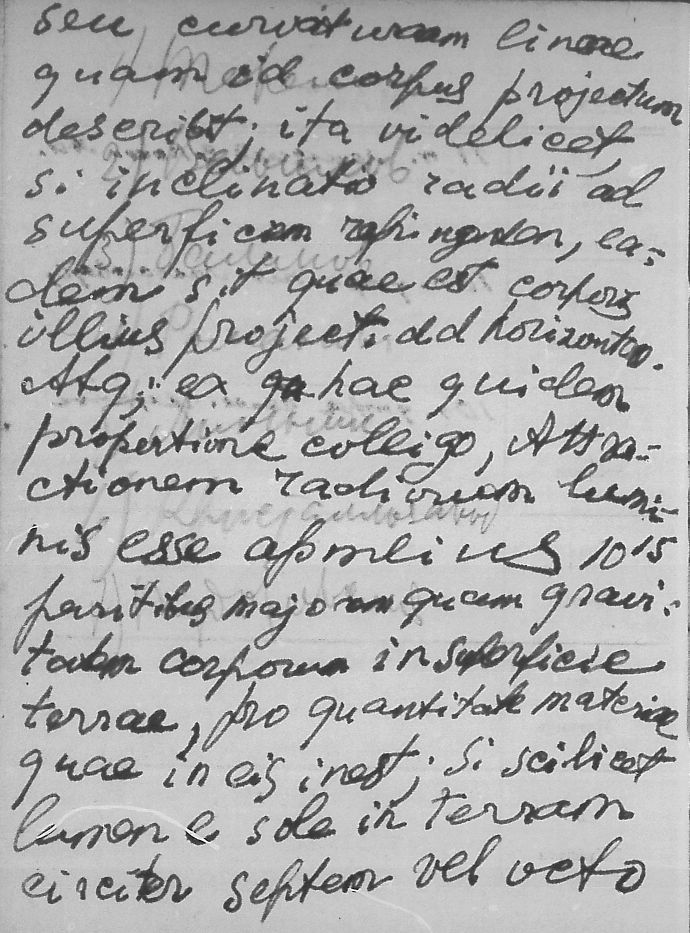 seu curvaturam lineae
quam id corpus projectum
describit; ita videlicet,
si inclinatio radii ad
superficiem refringentem, ea-
dem sit quae est corporis
illius projecti ad horizontem.
Atq; ex hac quidem
proportione colligo, Attra-
ctionem radiorum lumi-
nis esse amplius 10¹⁵
partibus majorem quam gravi-
tatem corporum in superficie
terrae, pro quantitate materiae
quae in eis inest; si scilicet
lumen e sole in terram
circiter septem vel octo